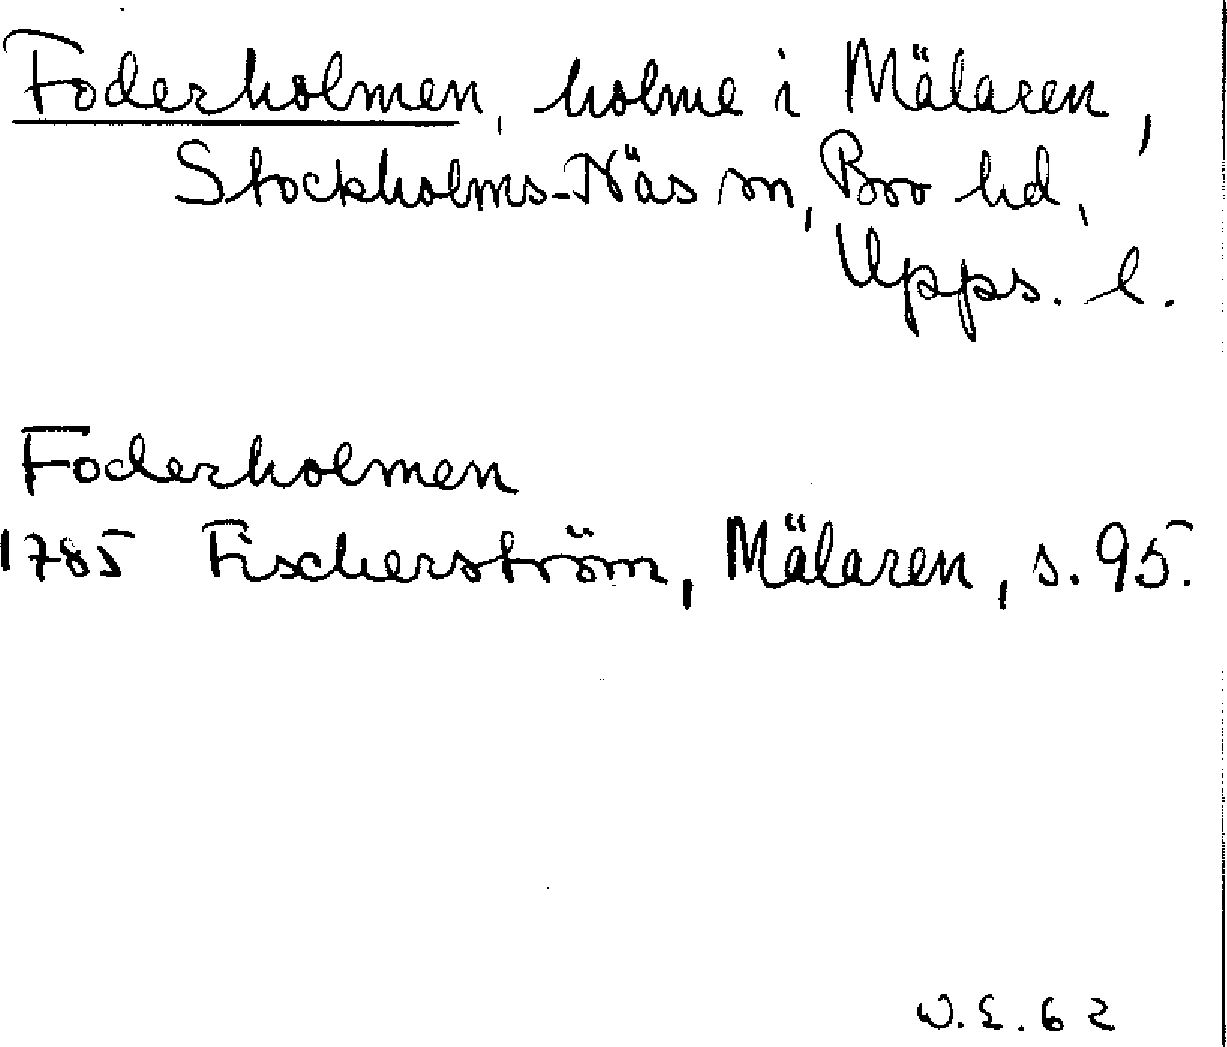 Foderholmen, holme i Mälaren,
Stockholms-Näs sn, Bro hd,
Upps. l.
Foderholmen
1785 Fischerström, Mälaren, s. 95.
W.E. 62